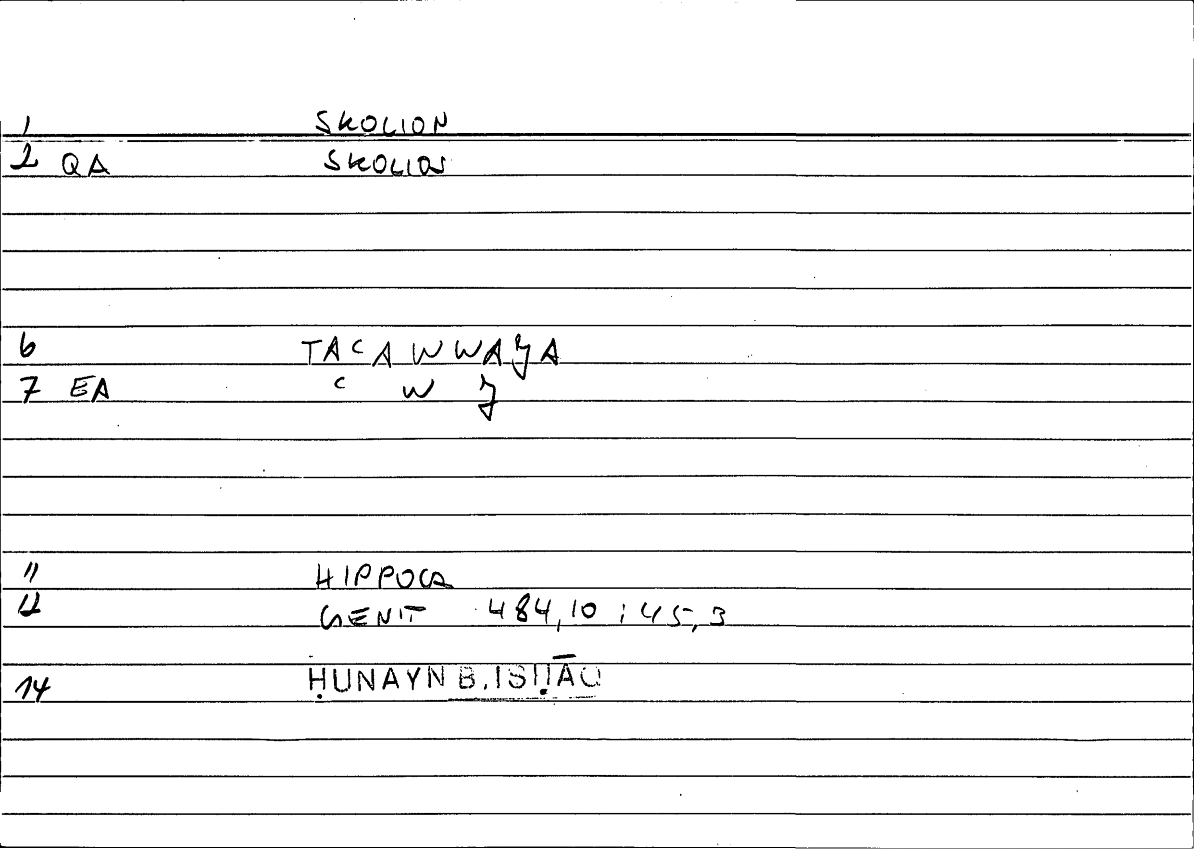 1 SKOLION
2 QA SKOLION
6 TACAWWAJA
7 EA C W J
11 HIPPOCR
12 GENIT 484,10 ; 45,3
14 ḤUNAYN B. ISḤĀQ